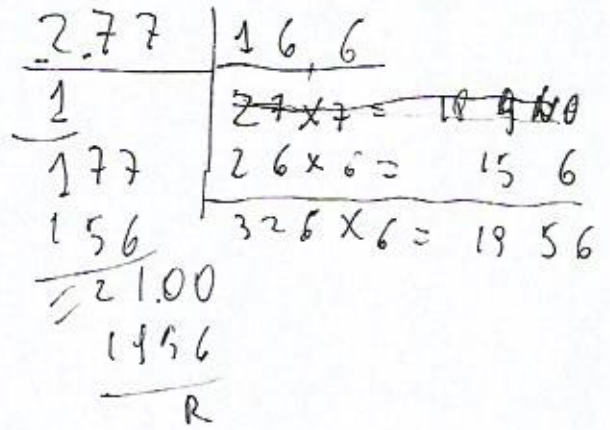 2.77 | 16,6
1
27×7=
177
26×6= 15 6
156
326×6= 1956
2100
1956
R